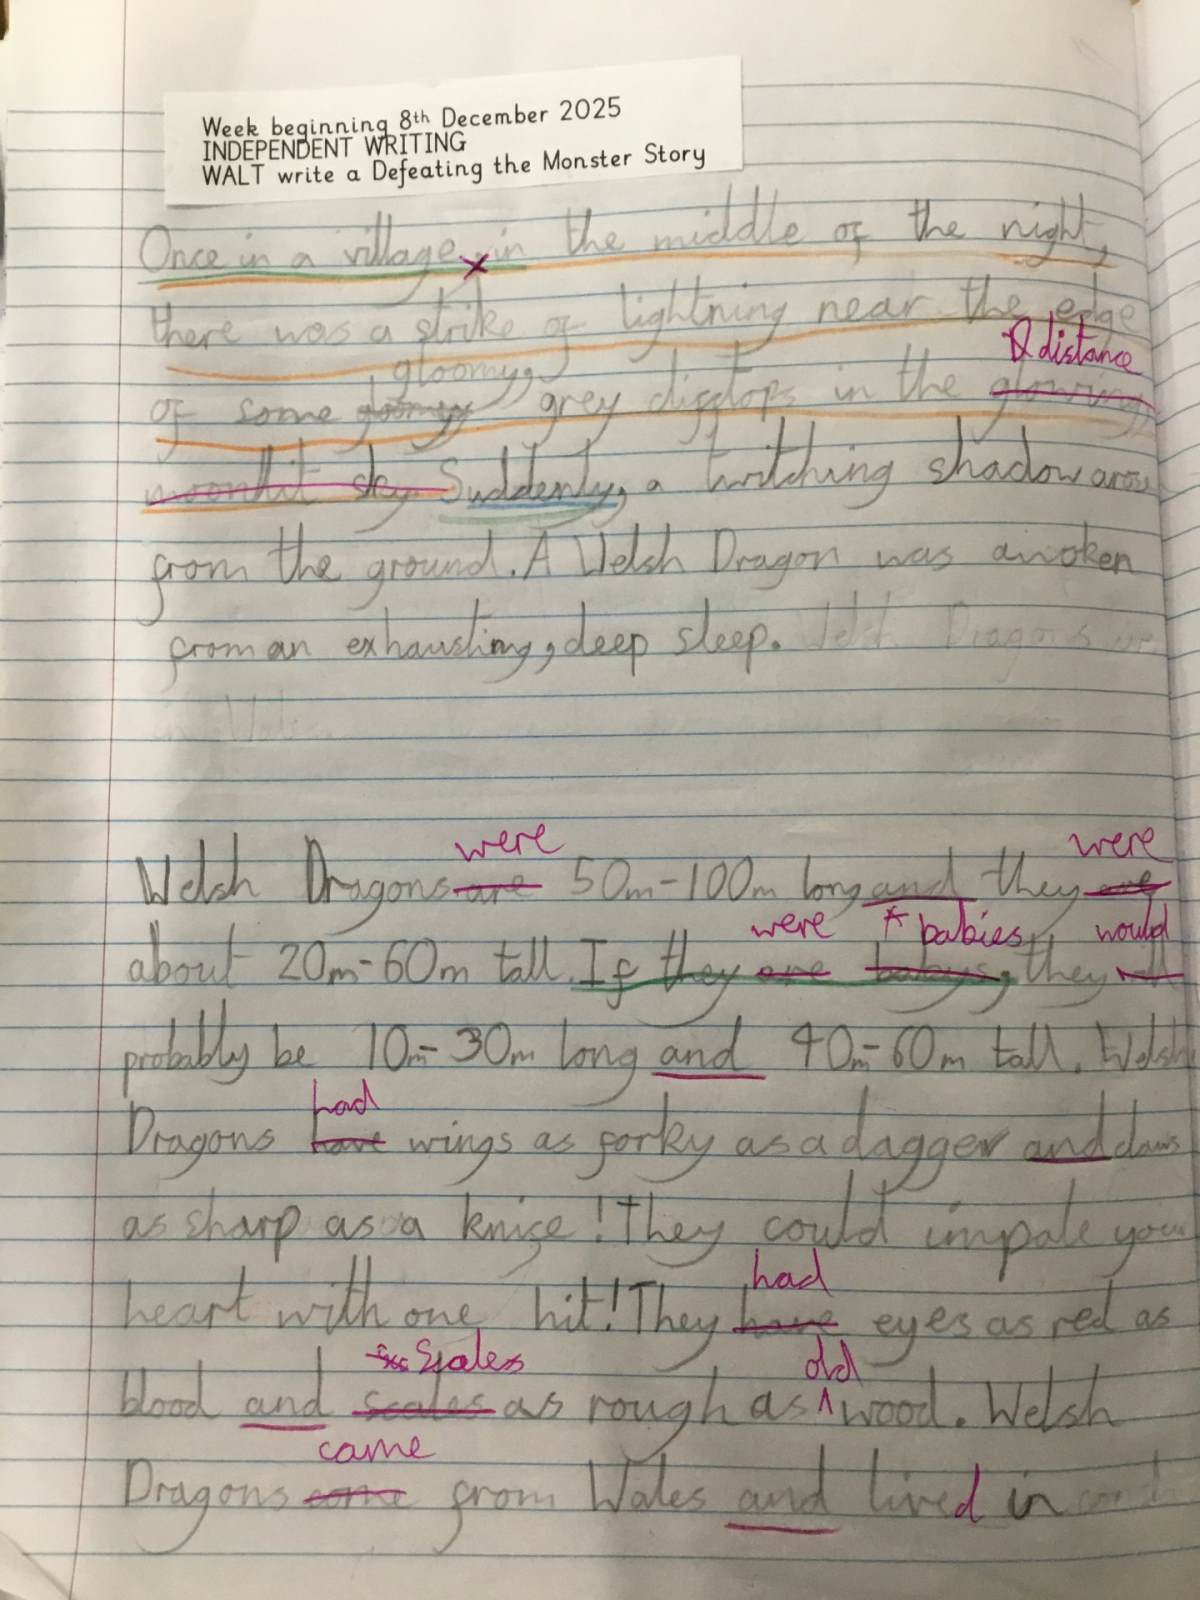 Week beginning 8th December 2025
INDEPENDENT WRITING
WALT write a Defeating the Monster Story
Once in a village in the middle of the night,
there was a strike of lightning near the edge
distance
gloomy,
of some gloomy grey clifftops in the glowing
moonlit sky. Suddenly, a twitching shadow arose
from the ground. A Welsh Dragon was awoken
from an exhausting, deep sleep. Welsh Dragons
in Wales
were were
Welsh Dragons are 50m-100m long and they are
were * babies, would
about 20m-60m tall. If they are babys, they will
probably be 10m-30m long and 40m-60m tall. Welsh
had
Dragons have wings as forky as a dagger and claws
as sharp as a knife! They could impale your
had
heart with one hit! They have eyes as red as
Scales old
blood and scales as rough as ^ wood. Welsh
came
Dragons come from Wales and lived in